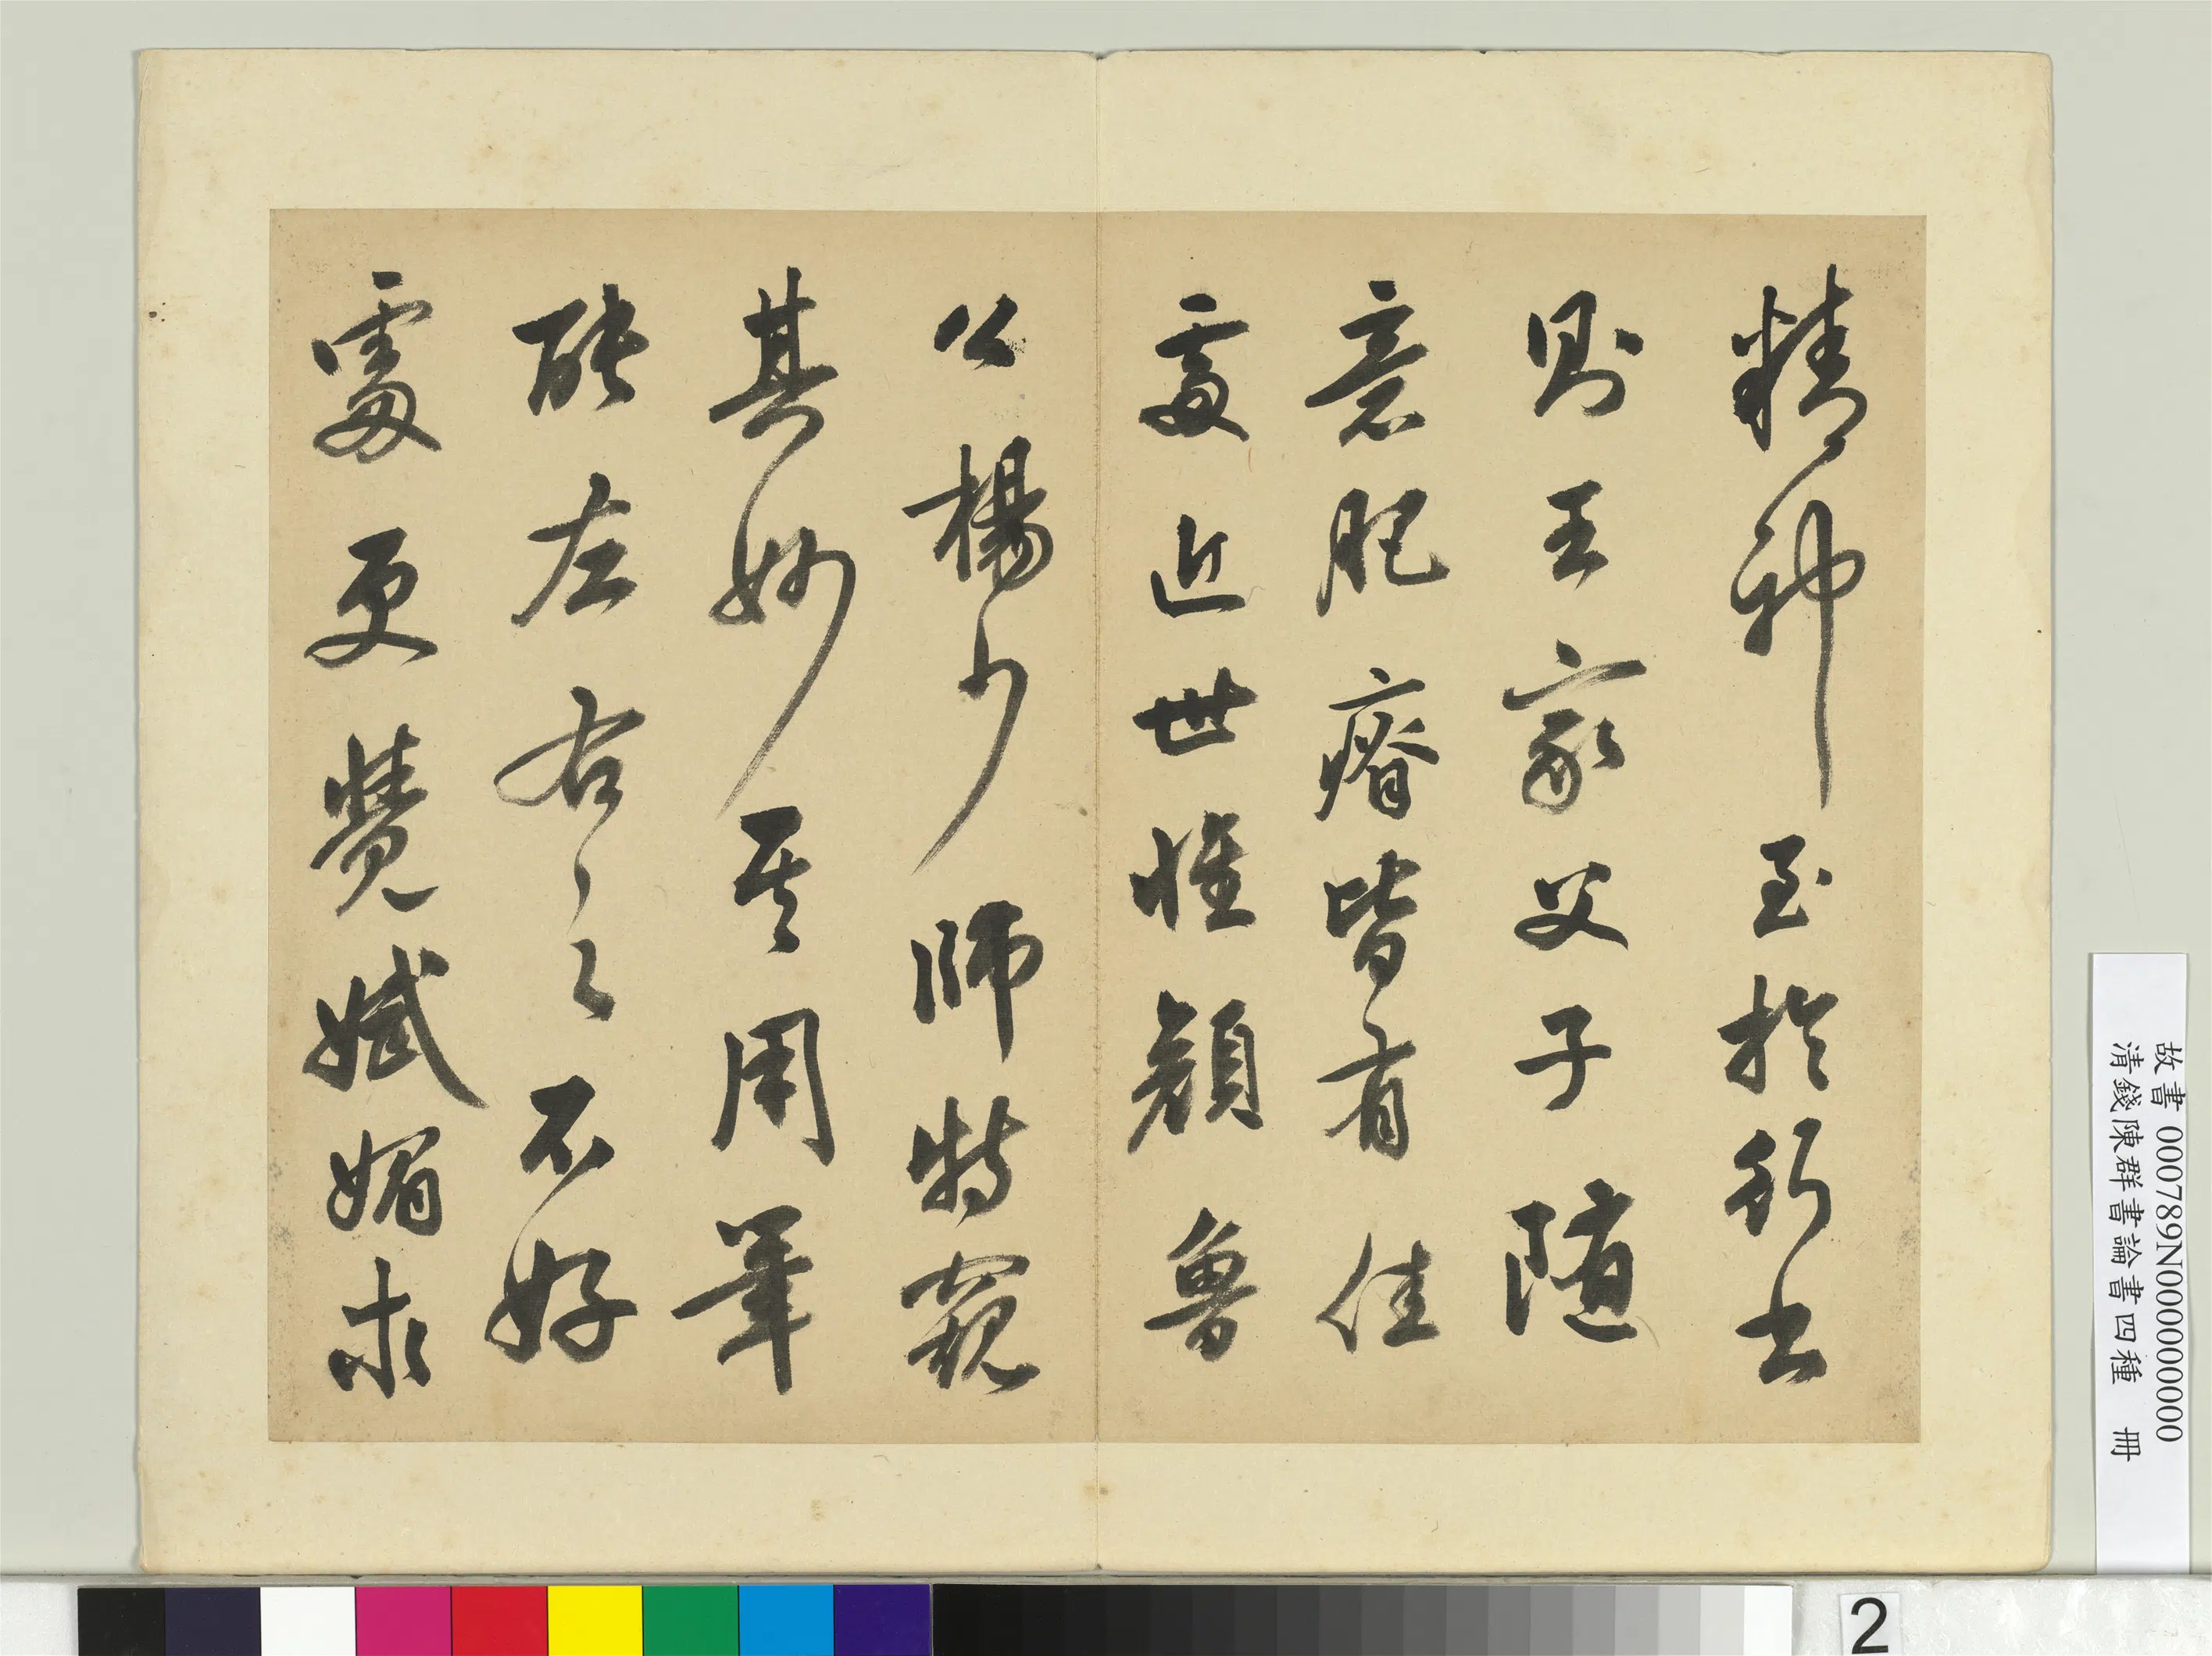 精神至於行書
則王家父子隨
意肥瘠皆有佳
處近世惟顏魯
公楊少師特窺
其妙其用筆
酣左右之不好
處更覺娬媚求
故書 000789N000000000
清錢陳群書論書四種 冊
2